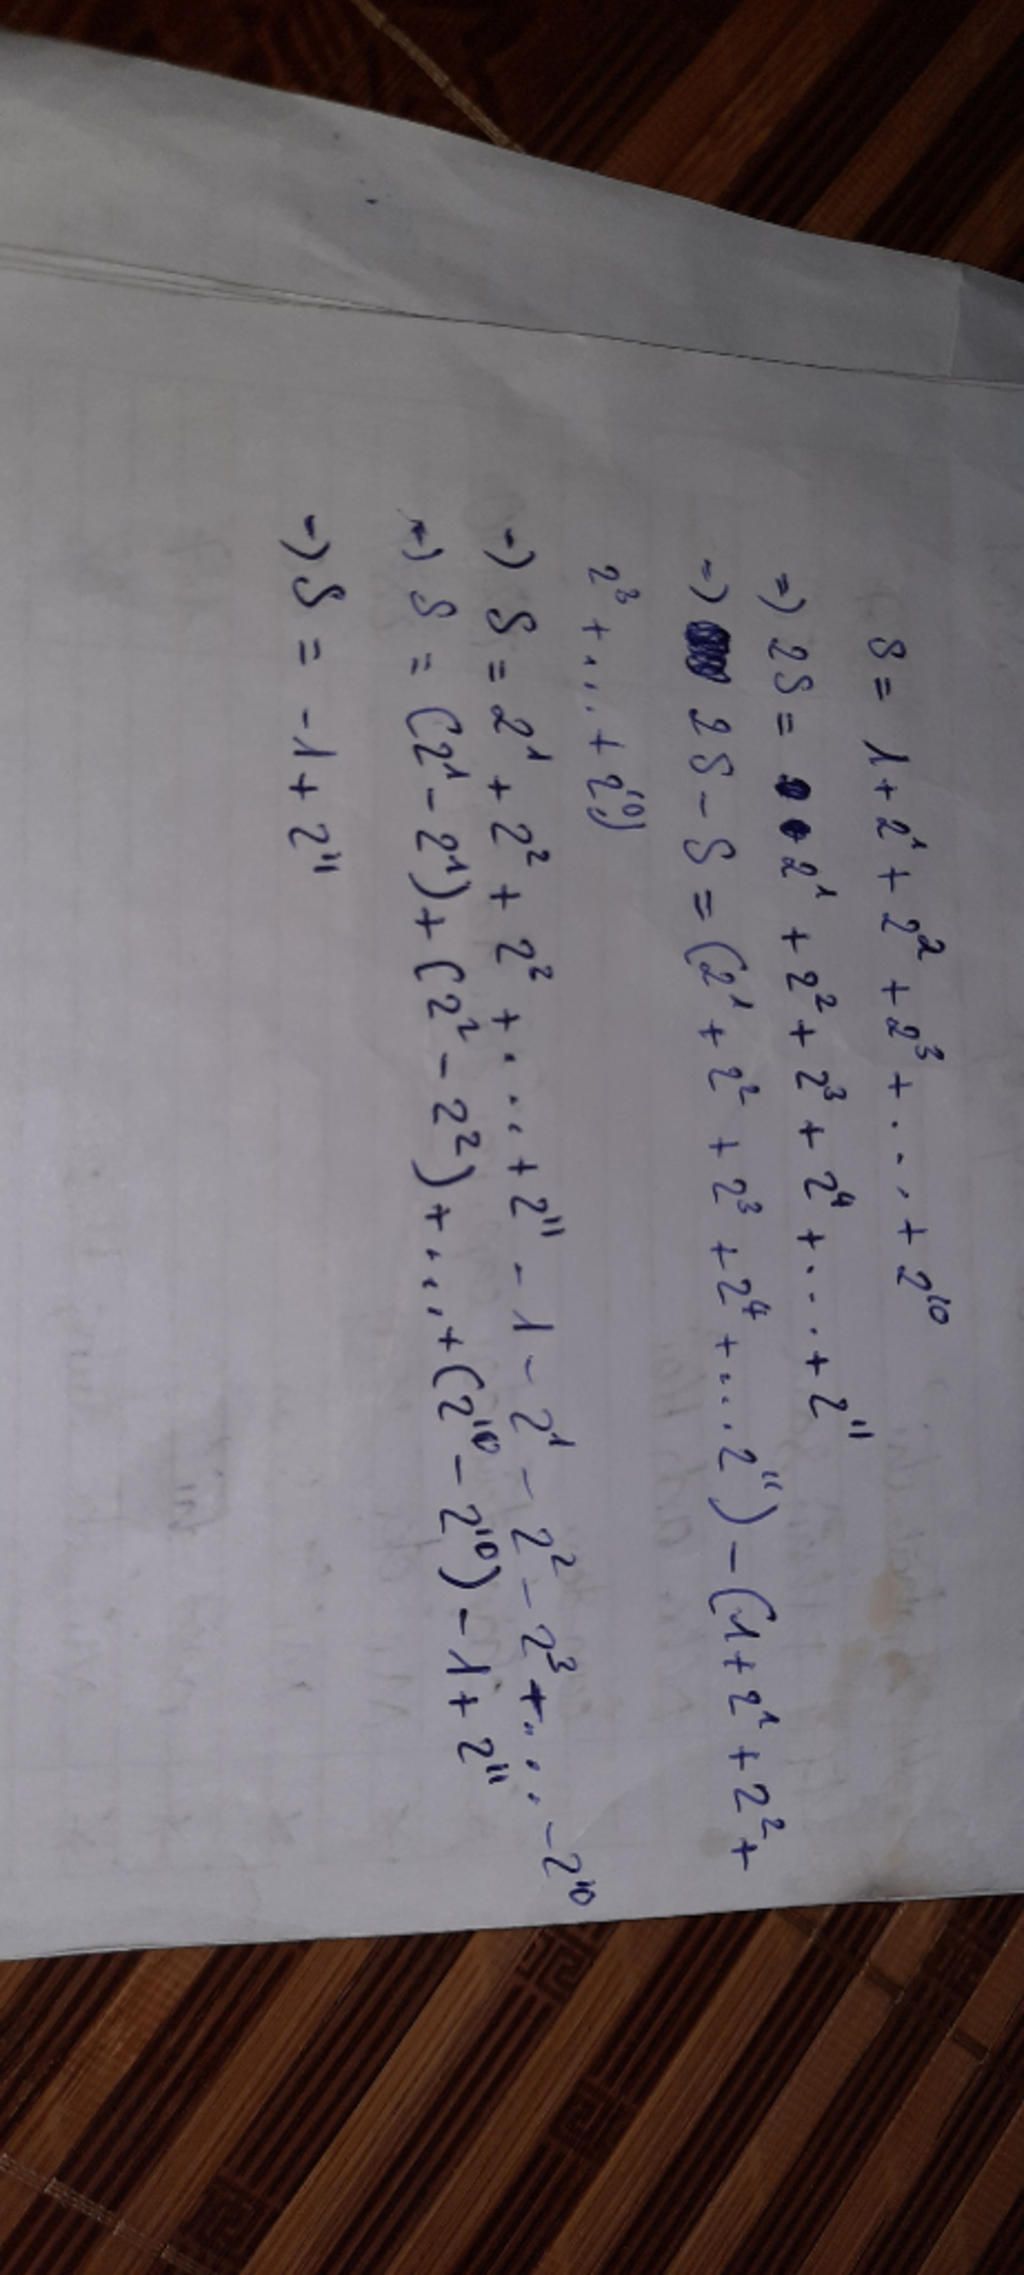 S = 1 + 2¹ + 2² + 2³ + . . . + 2¹⁰
=) 2S = 2¹ + 2² + 2³ + 2⁴ + . . . + 2¹¹
=) 2S - S = (2¹ + 2² + 2³ + 2⁴ + ... 2¹¹) - (1 + 2¹ + 2² +
2³ + ... + 2¹⁰)
=) S = 2¹ + 2² + 2² + ... + 2¹¹ - 1 - 2¹ - 2² - 2³ + ... - 2¹⁰
=) S = (2¹ - 2¹) + (2² - 2²) + ... + (2¹⁰ - 2¹⁰) - 1 + 2¹¹
=) S = -1 + 2¹¹